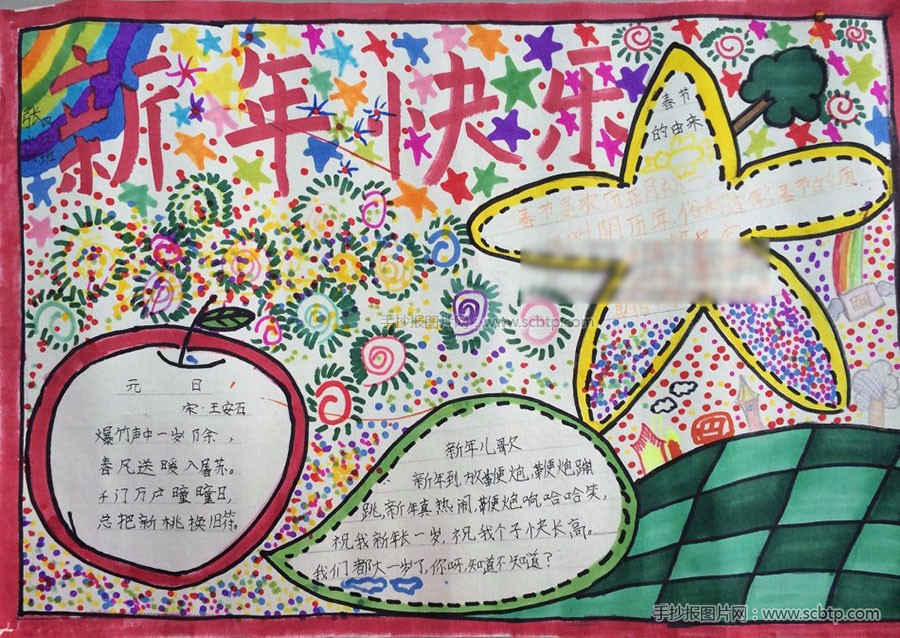 新年快乐
张
班
春节
的由来
春节是农历正月初一
叫阴历年,俗称过年
手抄报图片网:www.scbtp.com
元 日
宋·王安石
爆竹声中一岁除,
春风送暖入屠苏。
千门万户曈曈日,
总把新桃换旧符。
新年儿歌
新年到,放鞭炮,鞭炮蹦
跳,新年真热闹,鞭炮响哈哈笑,
祝我新年长一岁,祝我个子快长高。
我们都大一岁了,你呀,知道不知道?
四
手抄报图片网:www.scbtp.com